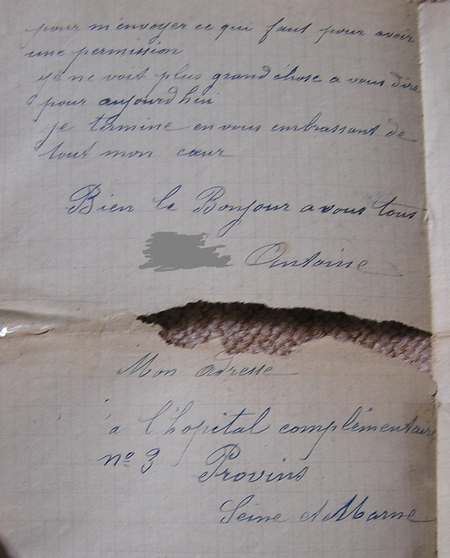 pour m'envoyer ce qui faut pour avoir
une permission
je ne voit plus grand chose a vous dire
pour aujourd'hui
je termine en vous embrassant de
tout mon cœur
Bien le Bonjour a vous tous
Antoine
Mon adresse
à l'hopital complémentaire
n° 3 Provins
Seine et Marne